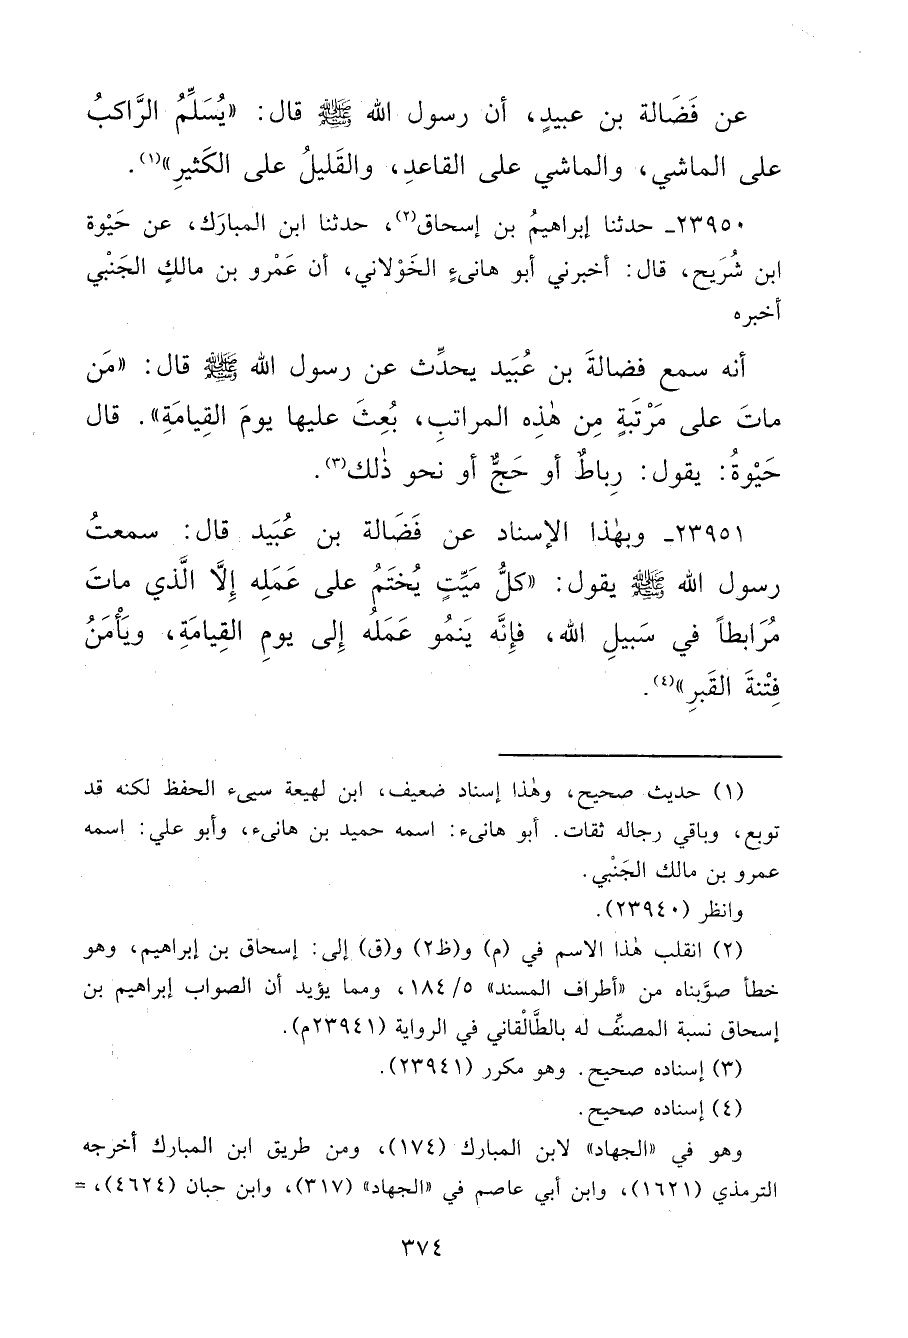 عن فَضَالة بن عبيدٍ، أن رسول الله ﷺ قال: «يُسَلِّمُ الرَّاكبُ
على الماشي، والماشي على القاعدِ، والقَليلُ على الكَثيرِ»(١).
٢٣٩٥٠ـ حدثنا إبراهيمُ بن إسحاق(٢)، حدثنا ابن المبارَك، عن حَيْوة
ابن شُرَيح، قال: أخبرني أبو هانىءٍ الخَوْلاني، أن عَمْرو بن مالكٍ الجَنْبي
أخبره
أنه سمع فضالةَ بن عُبَيد يحدِّث عن رسول الله ﷺ قال: «مَن
ماتَ على مَرْتَبَةٍ مِن هٰذِه المراتبِ، بُعِثَ عليها يومَ القِيامَةِ». قال
حَيْوةُ: يقول: رِباطٌ أو حَجٌّ أو نحو ذٰلك(٣).
٢٣٩٥١ـ وبهٰذا الإسناد عن فَضَالة بن عُبَيد قال: سمعتُ
رسول الله ﷺ يقول: «كلُّ مَيِّتٍ يُختَمُ على عَمَلِه إِلَّا الَّذي ماتَ
مُرَابطاً في سَبيلِ الله، فإِنَّه يَنمُو عَمَلُه إِلى يومِ القِيامَةِ، ويَأْمَنُ
فِتْنةَ القَبرِ»(٤).
(١) حديث صحيح، وهٰذا إسناد ضعيف، ابن لهيعة سيىء الحفظ لكنه قد
توبع، وباقي رجاله ثقات. أبو هانىء: اسمه حميد بن هانىء، وأبو علي: اسمه
عمرو بن مالك الجَنْبي.
وانظر (٢٣٩٤٠).
(٢) انقلب هٰذا الاسم في (م) و(ظ٢) و(ق) إلى: إسحاق بن إبراهيم، وهو
خطأ صوَّبناه من «أطراف المسند» ٥/ ١٨٤، ومما يؤيد أن الصواب إبراهيم بن
إسحاق نسبة المصنِّف له بالطَّالْقاني في الرواية (٢٣٩٤١م).
(٣) إسناده صحيح. وهو مكرر (٢٣٩٤١).
(٤) إسناده صحيح.
وهو في «الجهاد» لابن المبارك (١٧٤)، ومن طريق ابن المبارك أخرجه
الترمذي (١٦٢١)، وابن أبي عاصم في «الجهاد» (٣١٧)، وابن حبان (٤٦٢٤)، =
٣٧٤